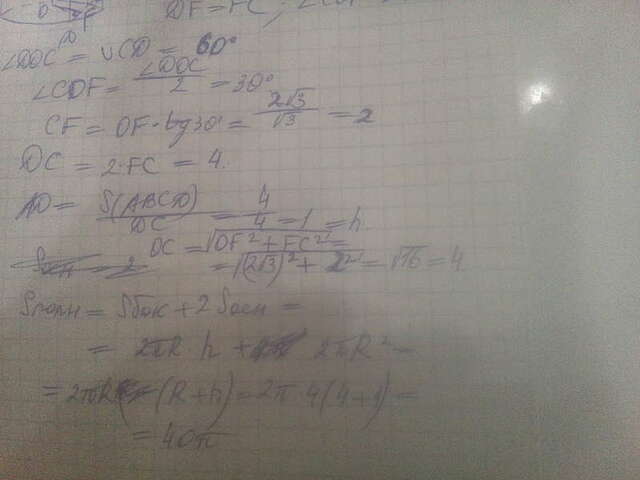 DF = FC;
∠DOC = ∪CD = 60°
∠COF = ∠DOC / 2 = 30°
CF = OF · tg30° = 2√3 / √3 = 2
DC = 2·FC = 4.
AD = S(ABCD) / DC = 4 / 4 = 1 = h
OC = √OF² + FC² =
= √(2√3)² + 2² = √16 = 4
Sполн = Sбок + 2 Sосн =
= 2πR h + 2πR² =
= 2πR (R + h) = 2π·4(4+1) =
= 40π